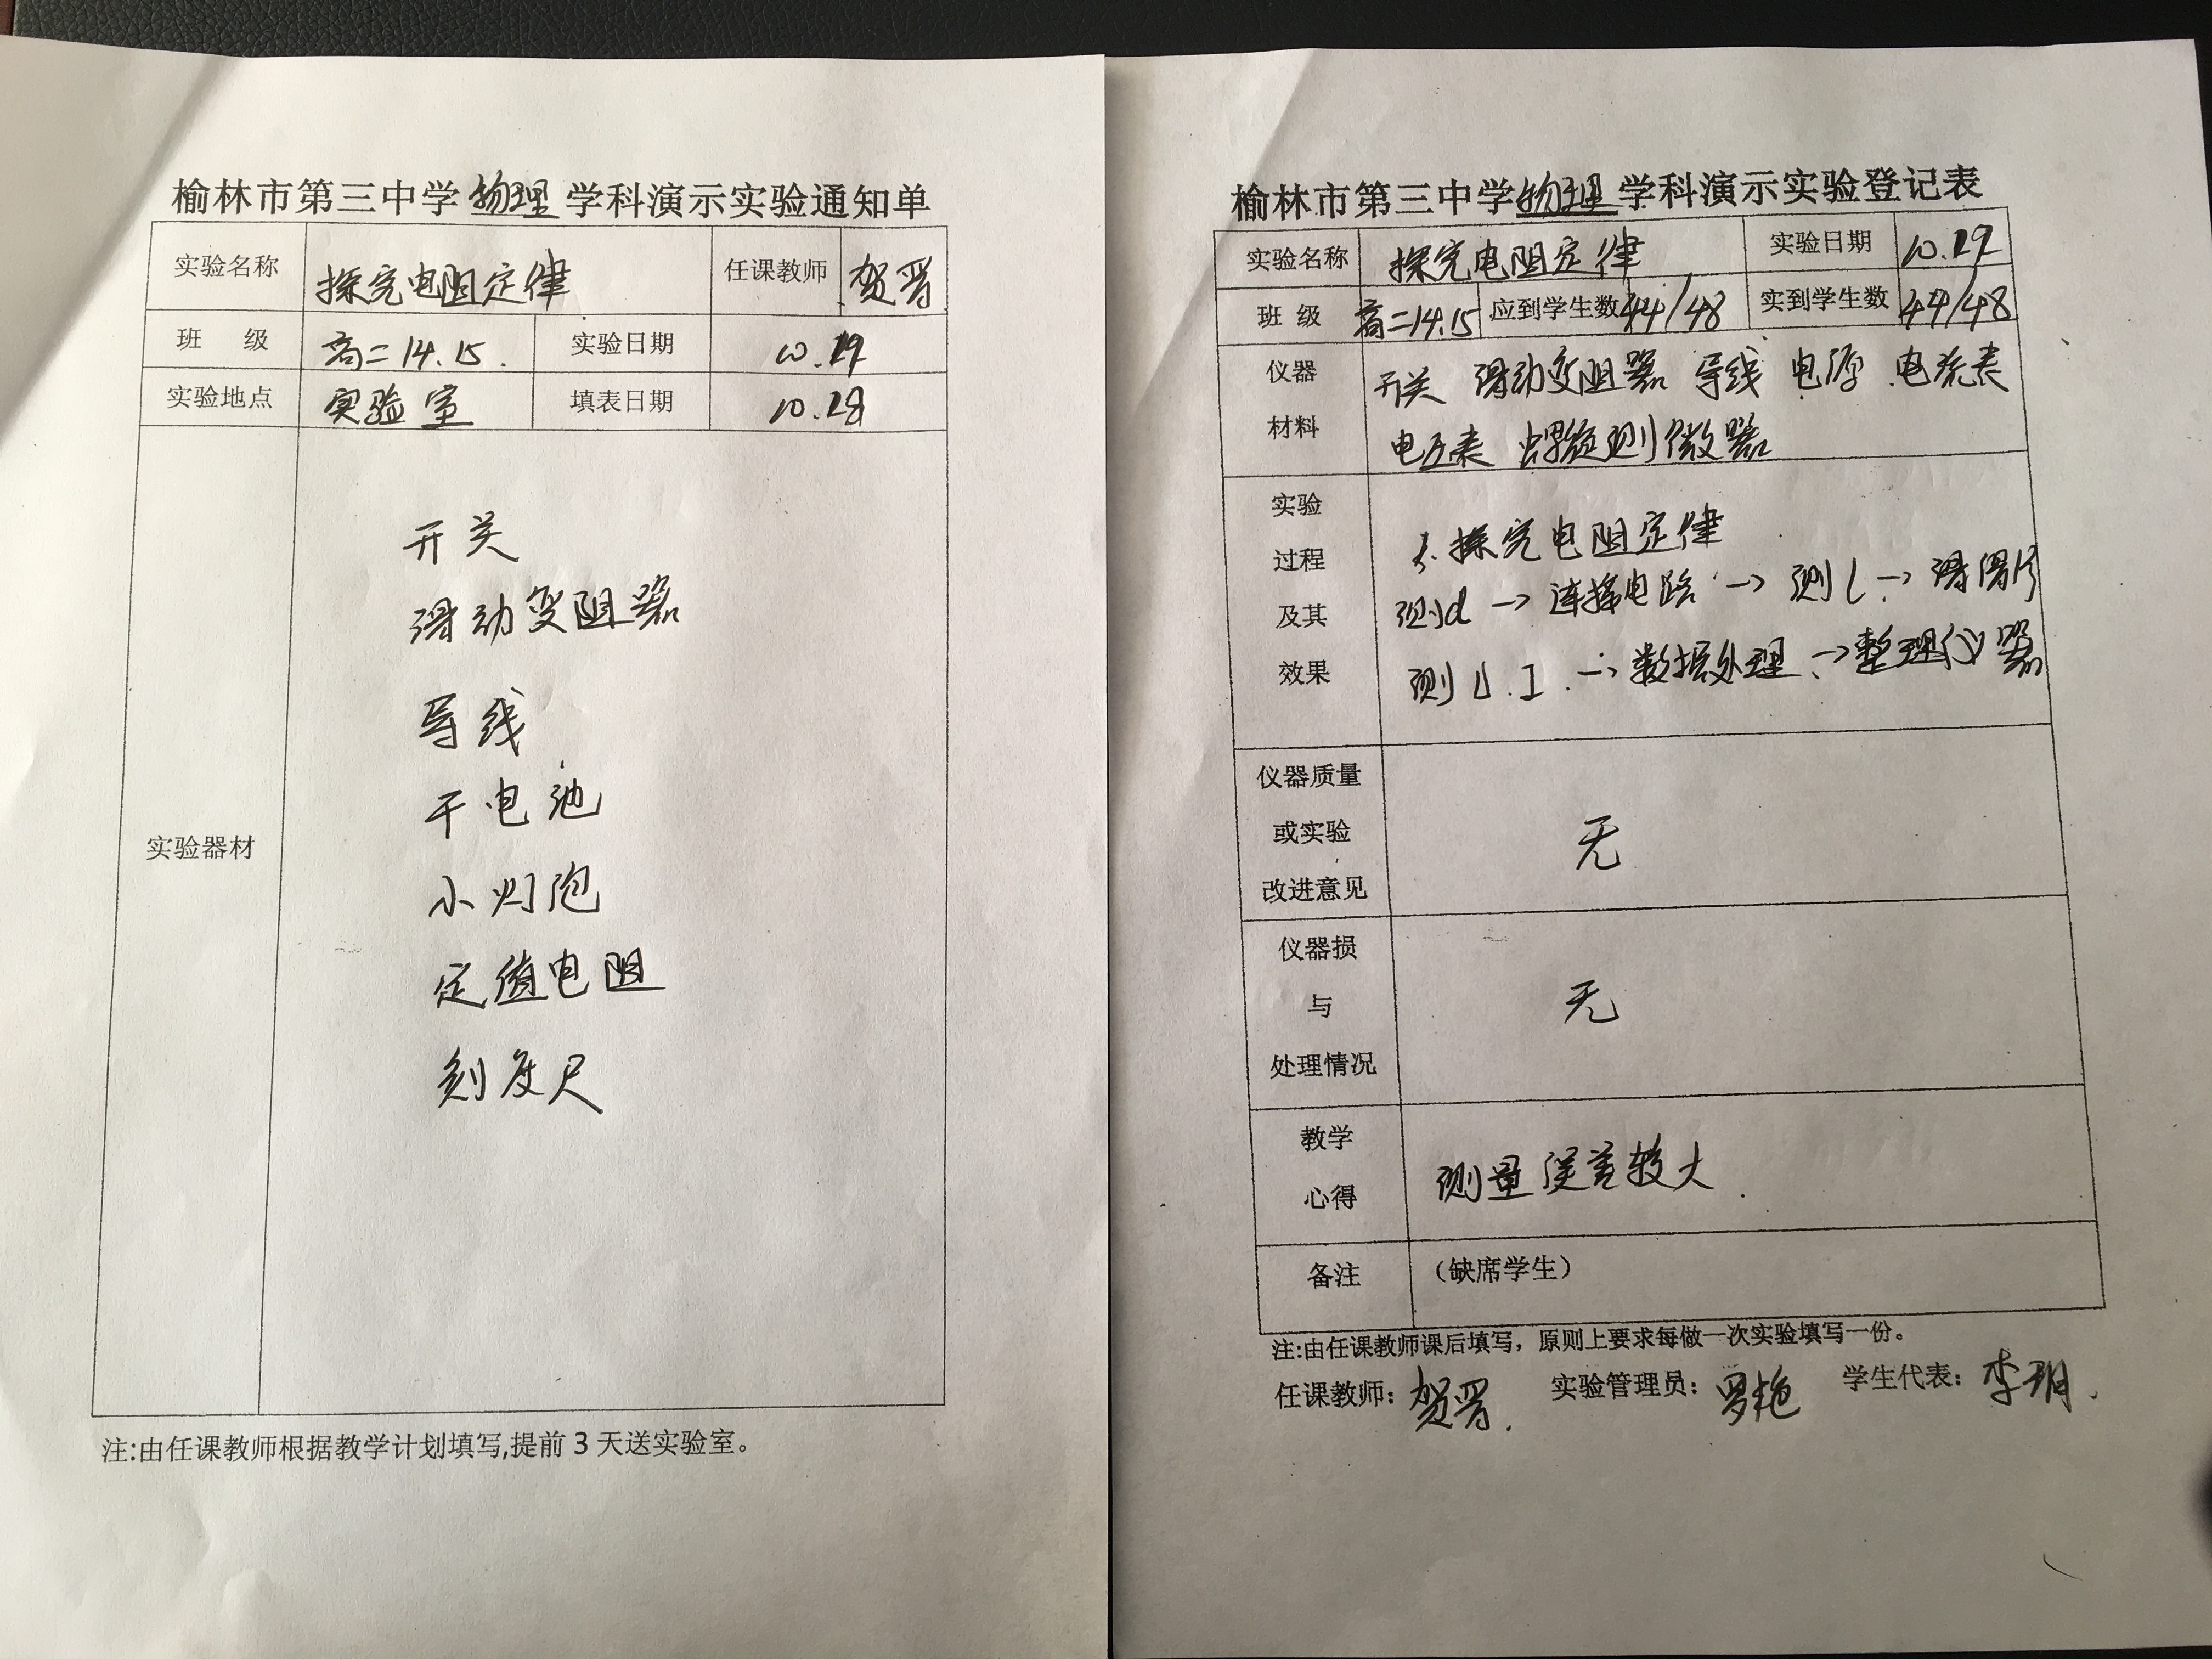 榆林市第三中学物理学科演示实验通知单
实验名称 探究电阻定律 任课教师 贺晋
班 级 高二14.15. 实验日期 10.29
实验地点 实验室 填表日期 10.28
实验器材
开关
滑动变阻器
导线
干电池
小灯泡
定值电阻
刻度尺
注:由任课教师根据教学计划填写,提前3天送实验室。
榆林市第三中学物理学科演示实验登记表
实验名称 探究电阻定律 实验日期 10.29
班 级 高二14.15 应到学生数 44/48 实到学生数 44/48
仪器材料
开关 滑动变阻器 导线 电源 电流表
电压表 螺旋测微器
实验过程及其效果
1.探究电阻定律
测d → 连接电路 → 测L →
测U.I. → 数据处理 → 整理仪器
仪器质量或实验改进意见
无
仪器损与处理情况
无
教学心得
测量误差较大.
备注 (缺席学生)
注:由任课教师课后填写，原则上要求每做一次实验填写一份。
任课教师: 贺晋. 实验管理员: 罗艳 学生代表: 李玥.